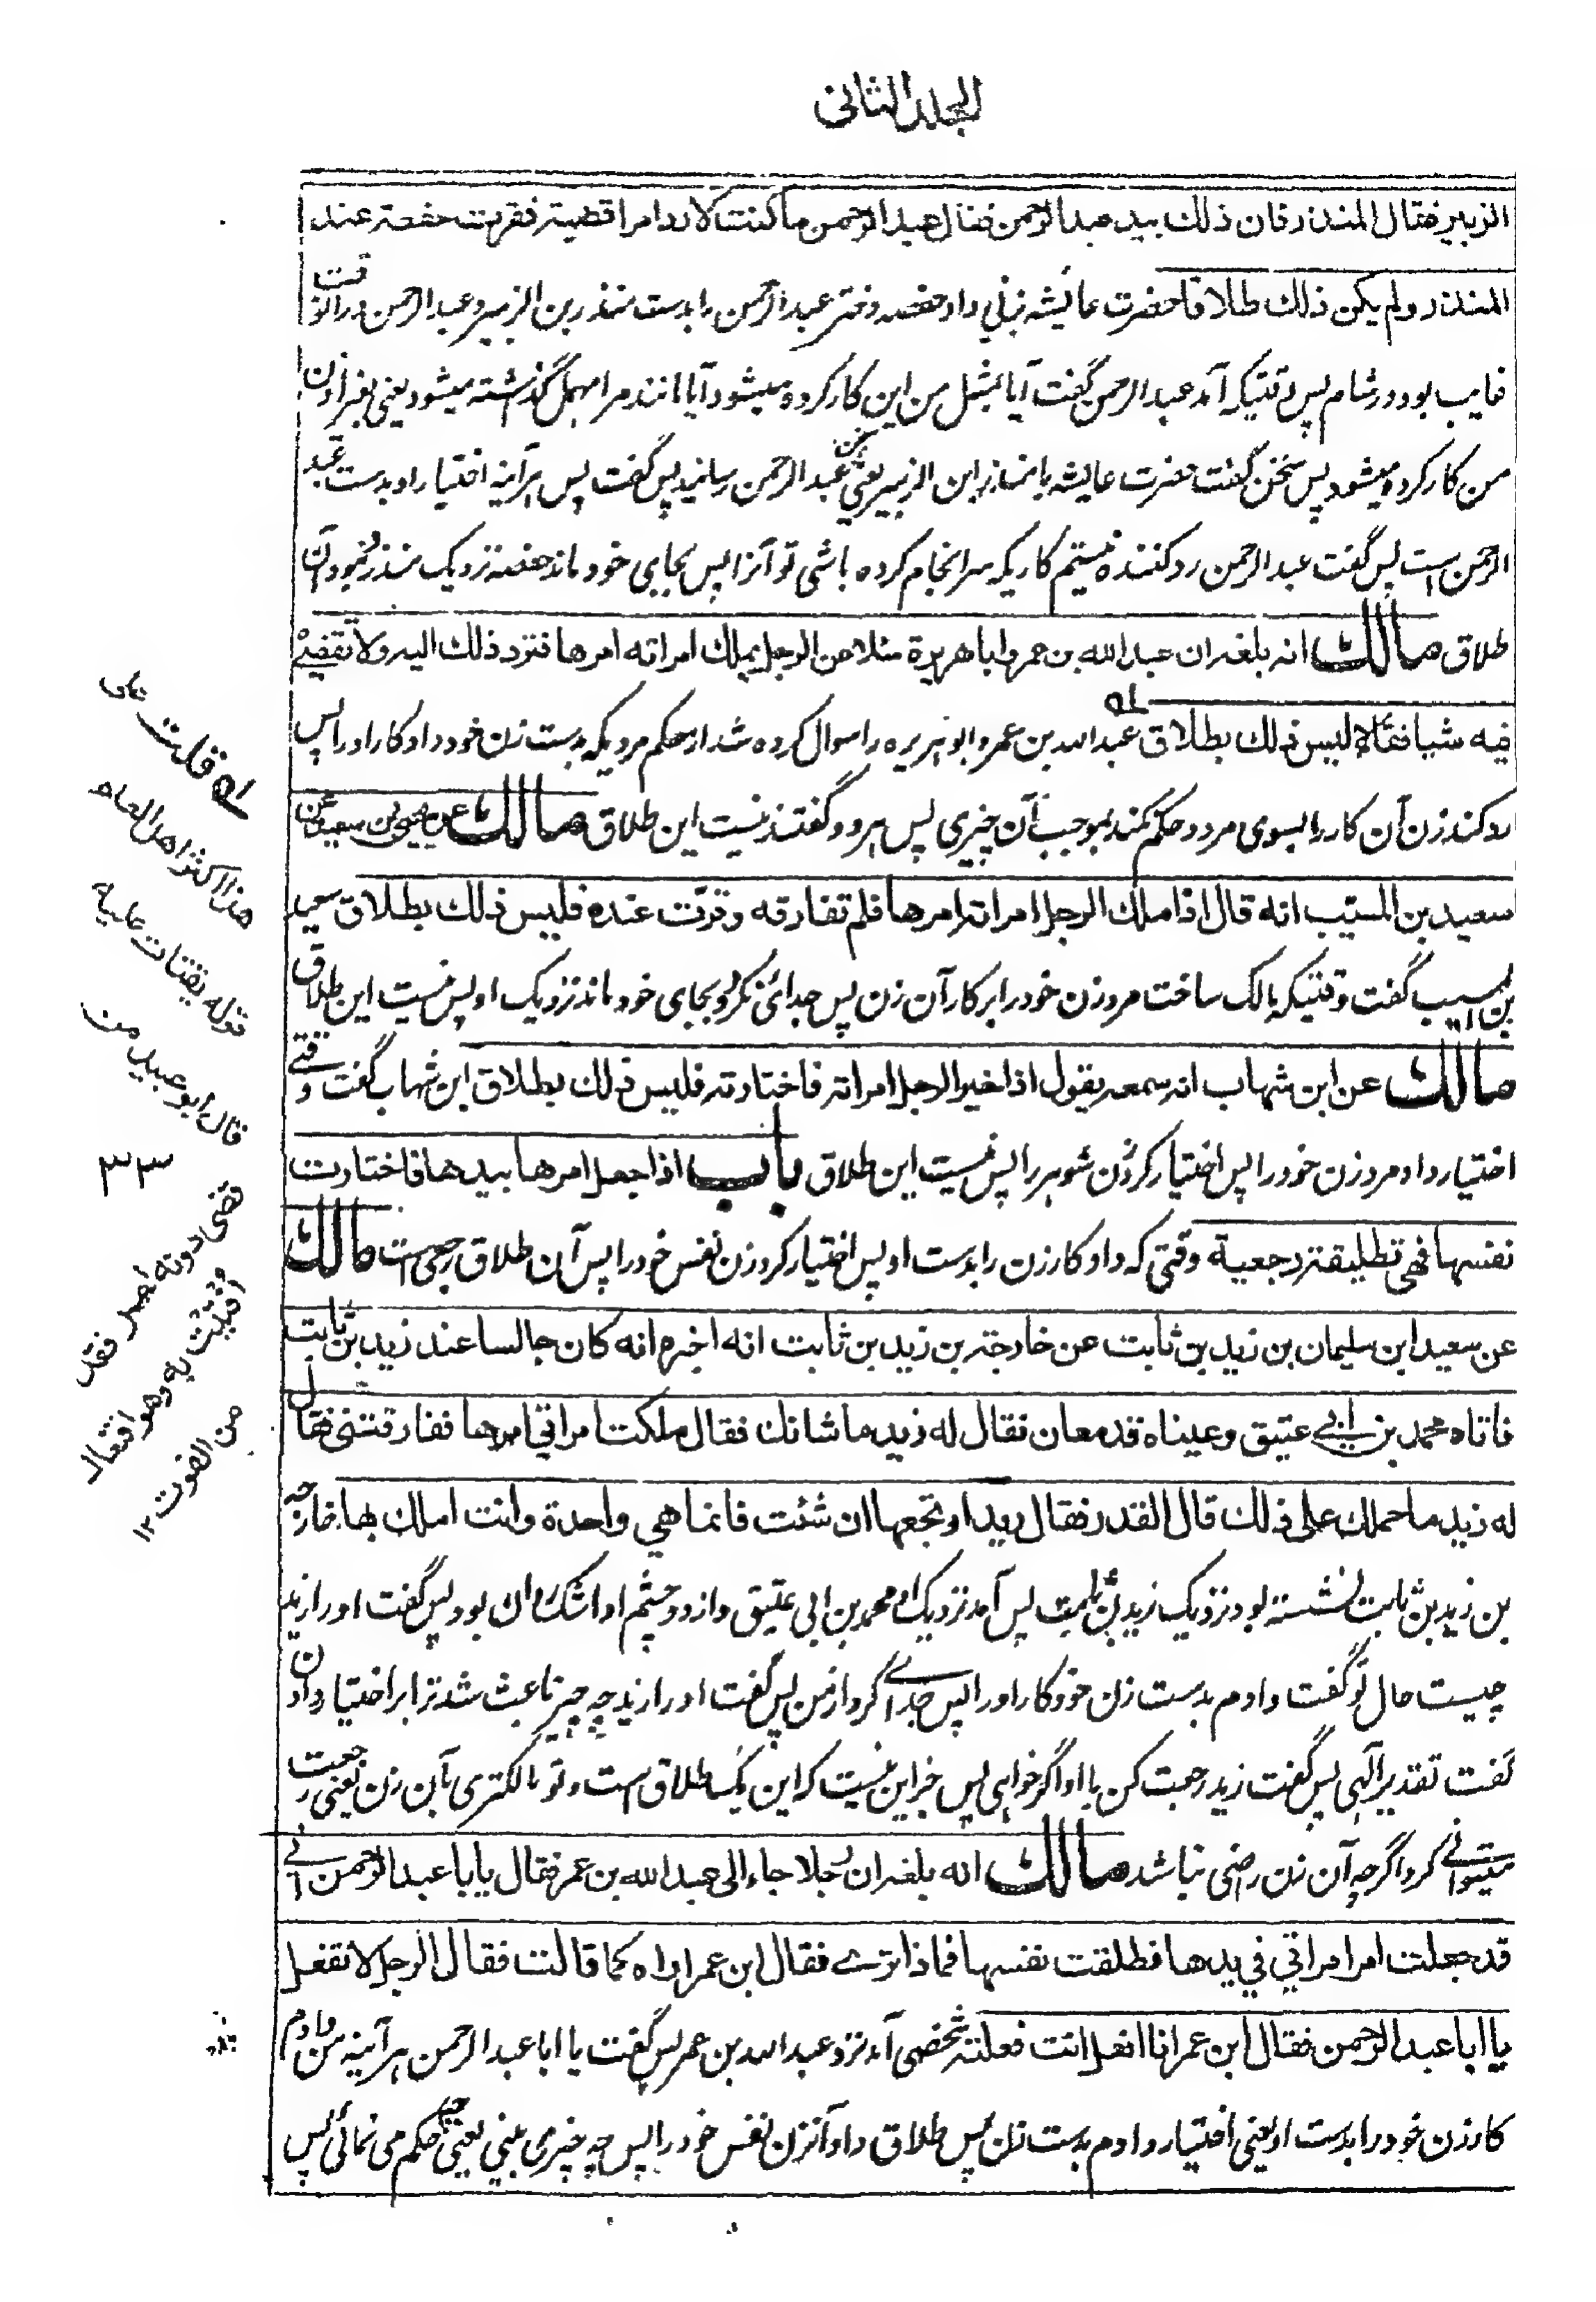 الجلد الثانی
الزبير فقال المنذر فان ذلك بيد عبد الرحمن فقال عبد الرحمن ما كنت لارد امرا قضيته فقرت حفصة عند
المنذر ولم يكن ذلك طلاقا حضرت عایشه بزنی داد حفصه دختر عبد الرحمن را بدست منذر بن الزبیر و عبد الرحمن درانوقت
غایب بود در شام پس وقتیکه آمد عبد الرحمن گفت آیا بمثل من این کار کرده میشود آیا مانند مرا مهمل گذاشته میشود یعنی بغیر اذن
من کار کرده میشود پس سخن گفت حضرت عایشه با منذر ابن الزبیر یعنی سخن عبد الرحمن رسانید پس گفت پس هر آینه اختیار او بدست عبد
الرحمن است پس گفت عبد الرحمن رد کننده نیستم کاریکه سرانجام کرده باشی تو آنرا پس بجای خود ماند حفصه نزدیک منذر و نبود آن
طلاق مالك انه بلغه ان عبد الله بن عمر وابا هريرة سئلا عن الرجل يملك امراته امرها فترد ذلك اليه ولا تقضي
فيه شيا فقالا ليس ذلك بطلاق عبد الله بن عمر و ابو هریره را سوال کرده شد از حکم مردیکه بدست زن خود داد کار او را پس
رد کند زن آن کار را بسوی مرد و حکم نکند بموجب آن چیزی پس هر دو گفتند نیست این طلاق مالك عن يحيى بن سعيد عن
سعيد بن المسيب انه قال اذا ملك الرجل امراته امرها فلم تفارقه وقرت عنده فليس ذلك بطلاق سعید
بن المسیب گفت وقتیکه مالک ساخت مرد زن خود را بر کار آن زن پس جدائی نکرد و بجای خود ماند نزدیک او پس نیست این طلاق
مالك عن ابن شهاب انه سمعه يقول اذا خير الرجل امراته فاختارته فليس ذلك بطلاق ابن شهاب گفت وقتے
اختیار داد مرد زن خود را پس اختیار کرد زن شوهر را پس نیست این طلاق باب اذا جعل امرها بيدها فاختارت
نفسها فهي تطليقة رجعية وقتی که داد کار زن را بدست او پس اختیار کرد زن نفس خود را پس آن طلاق رجعی است مالك
عن سعيد ابن سليمان بن زيد بن ثابت عن خارجة بن زيد بن ثابت انه اخبره انه كان جالسا عند زيد بن ثابت
فاتاه محمد بن ابي عتيق وعيناه تدمعان فقال له زيد ما شانك فقال ملكت امراتي امرها ففارقتني فقال
له زيد ما حملك على ذلك قال القدر فقال زيد ارتجعها ان شئت فانما هي واحدة وانت املك بها خارجه
بن زید بن ثابت نشسته بود نزدیک زید بن ثابت پس آمد نزدیک او محمد بن ابی عتیق و از دو چشم او اشک روان بود پس گفت او را زید
چیست حال تو گفت دادم بدست زن خود کار او را پس جدائے کرد از من پس گفت او را زید چه چیز باعث شد ترا بر اختیار دادن
گفت تقدیر الهی پس گفت زید رجعت کن با او اگر خواهی پس جز این نیست که این یک طلاق است و تو مالکتری بآن زن یعنی رجعت
میتوانے کرد اگرچه آن زن راضی نباشد مالك انه بلغه ان رجلا جاء الى عبد الله بن عمر فقال يا ابا عبد الرحمن اني
قد جعلت امر امراتي في يدها فطلقت نفسها فماذا ترے فقال ابن عمر اراه كما قالت فقال الرجل لا تفعل
يا ابا عبد الرحمن فقال ابن عمر انا افعل انت فعلته شخصی آمد نزد عبد الله بن عمر پس گفت یا ابا عبد الرحمن هر آینه من دادم
کار زن خود را بدست او یعنی اختیار دادم بدست زن پس طلاق داد آنزن نفس خود را پس چه چیزی بینی یعنی چه حکم می نمائی پس
له قلت علی
هذا اكثر اهل العلم
قوله يفتات عليه
قال ابو عبيد من
قضى دونه امر فقد
افتيت به وهو افتعال
من الفوت ١٢